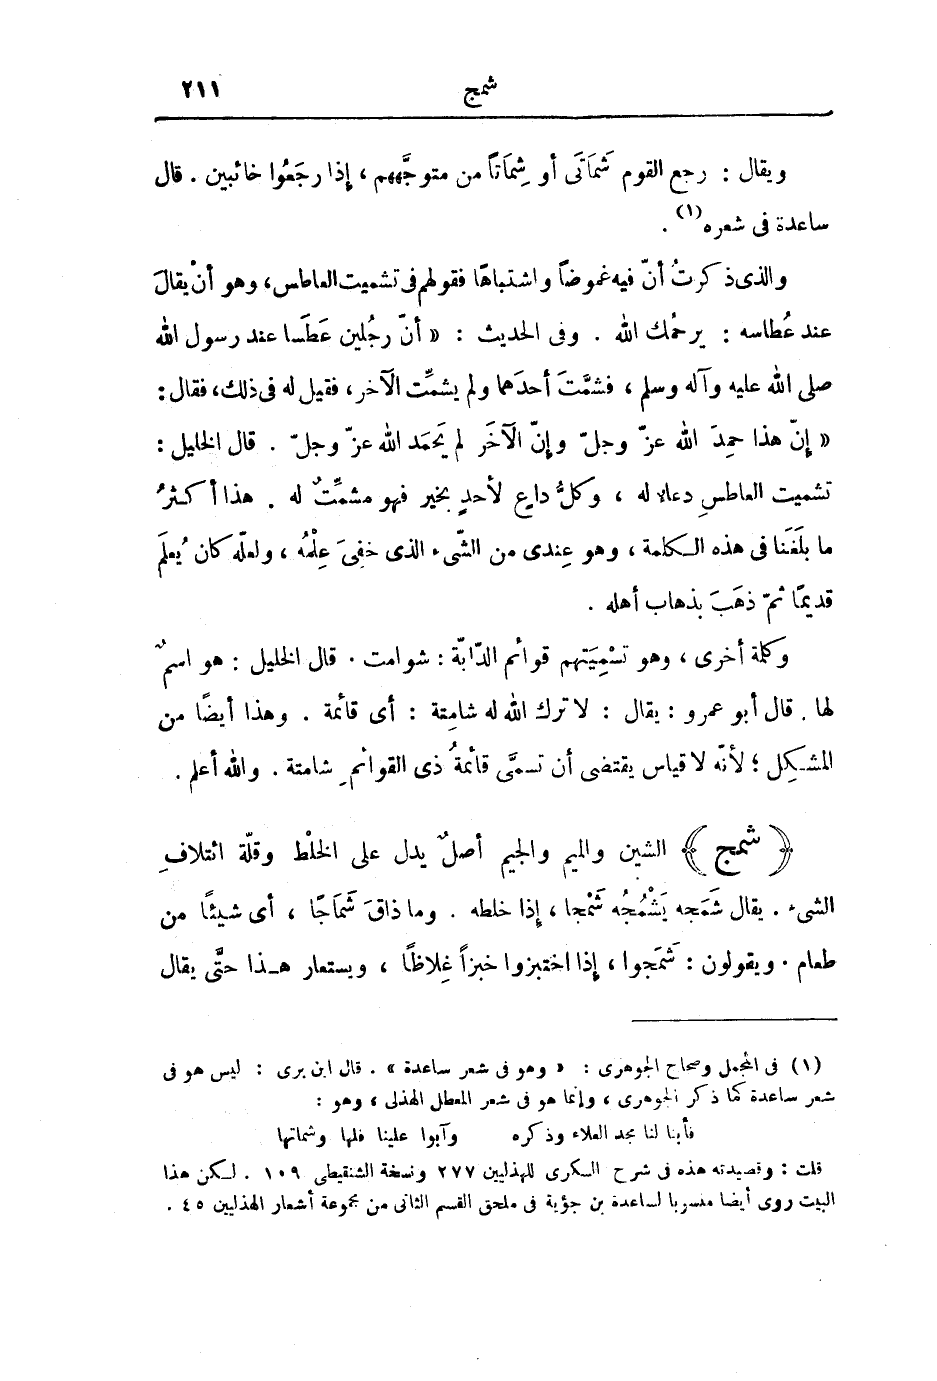 شمج ٢١١
ويقال : رجع القوم شَمَاتَى أو شِمَاتاً من متوجَّههم ، إذا رجَعُوا خائبين . قال
ساعدة فى شعره(١) .
والذى ذكرتُ أنّ فيه غموضاً واشتباهًا فقولهم فى تشميت العاطس، وهو أنْ يقالَ
عند عُطاسه : يرحمُك الله . وفى الحديث : « أنّ رجُلين عَطَسا عند رسول الله
صلى الله عليه وآله وسلم ، فشمَّتَ أحدَهما ولم يشمِّت الآخر ، فقيل له فى ذلك، فقال :
« إنّ هذا حمِدَ الله عزّ وجلّ وإنّ الآخَر لم يَحمَد الله عزّ وجلّ . قال الخليل :
تشميت العاطسِ دعاء له ، وكلُّ داعٍ لأحدٍ بخير فهو مشمِّتٌ له . هذا أكثرُ
ما بلَغَنا فى هذه الكلمة ، وهو عِندى من الشّىء الذى خفِىَ عِلْمُه ، ولعلّه كان يُعلَم
قديمًا ثمّ ذهَبَ بذهاب أهله .
وكلمة أخرى ، وهو تسْمِيَتهم قوائم الدّابّة : شوامت . قال الخليل : هو اسمٌ
لها . قال أبو عمرو : يقال : لا ترك الله له شامِتة : أى قائمة . وهذا أيضًا من
المشكِل ؛ لأنّه لا قياس يقتضى أن تسمَّى قائمةُ ذى القوائمِ شامتة . والله أعلم .
﴿ شمج ﴾ الشين والميم والجيم أصلٌ يدل على الخلْط وقلّة ائتلافِ
الشىء . يقال شَمَجه يَشْمُجُه شَمْجا ، إذا خلطه . وما ذاقَ شَمَاجًا ، أى شيئًا من
طعام . ويقولون : شَمَجوا ، إذا اختبزوا خبزاً غِلاظًا ، ويستعار هذا حتَّى يقال
(١) فى المجمل وصحاح الجوهرى : « وهو فى شعر ساعدة » . قال ابن برى : ليس هو فى
شعر ساعدة كما ذكر الجوهرى ، وإنما هو فى شعر المعطل الهذلى ، وهو :
فأبنا لنا مجد العلاء وذكره وآبوا علينا فلها وشماتها
قلت : وقصيدته هذه فى شرح السكرى للهذليين ٢٧٧ ونسخة الشنقيطى ١٠٩ . لكن هذا
البيت روى أيضا منسوبا لساعدة بن جؤية فى ملحق القسم الثانى من مجموعة أشعار الهذليين ٤٥ .